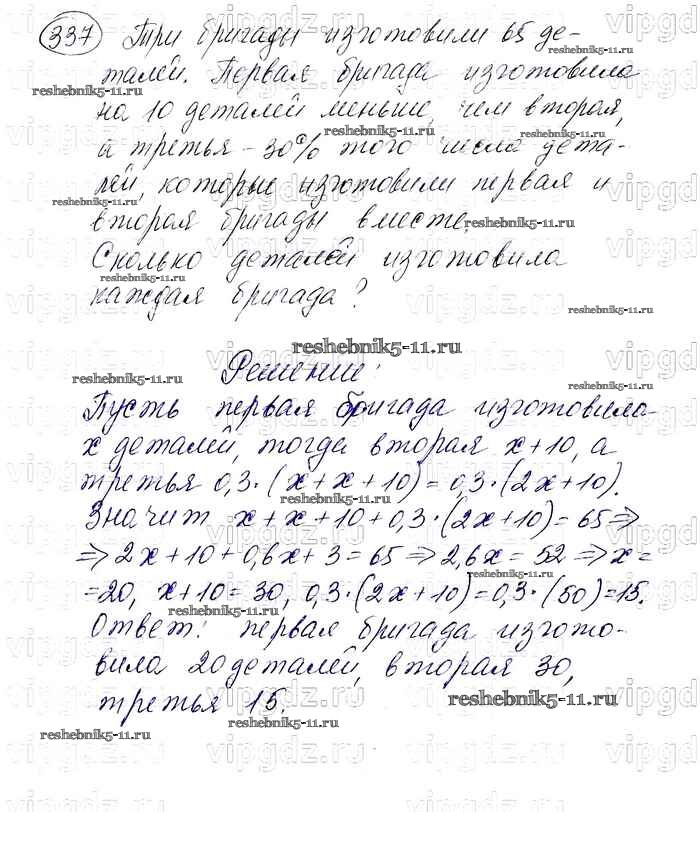 337 Три бригады изготовили 65 де-
талей. Первая бригада изготовила
на 10 деталей меньше, чем вторая,
а третья - 30% того числа дета-
лей, которые изготовили первая и
вторая бригады вместе.
Сколько деталей изготовила
каждая бригада?
Решение:
Пусть первая бригада изготовила
x деталей, тогда вторая x+10, а
третья 0,3·(x+x+10)=0,3·(2x+10).
Значит x+x+10+0,3·(2x+10)=65⇒
⇒2x+10+0,6x+3=65⇒2,6x=52⇒x=
=20, x+10=30, 0,3·(2x+10)=0,3·(50)=15.
Ответ: первая бригада изгото-
вила 20 деталей, вторая 30,
третья 15.
reshebnik5-11.ru
vipgdz.ru